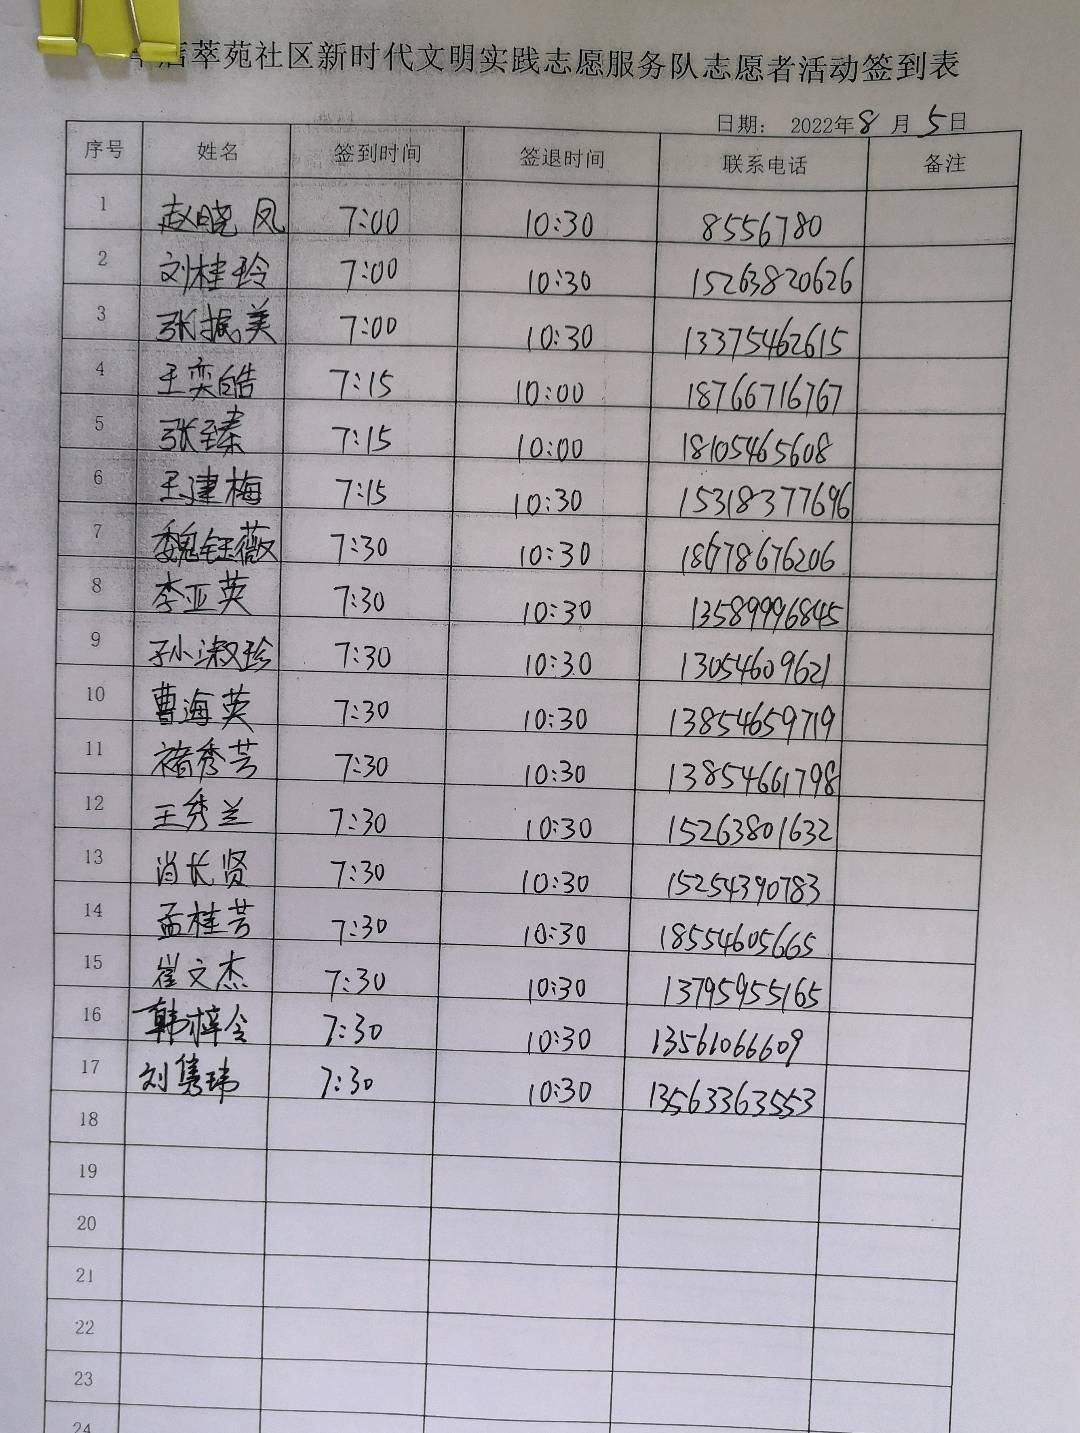 店萃苑社区新时代文明实践志愿服务队志愿者活动签到表
日期： 2022年8月5日
序号 姓名 签到时间 签退时间 联系电话 备注
1 赵晓凤 7:00 10:30 8556780
2 刘桂玲 7:00 10:30 15263820626
3 张振美 7:00 10:30 13375462615
4 王奕皓 7:15 10:00 18766716767
5 张臻 7:15 10:00 18105465608
6 王建梅 7:15 10:30 15318377696
7 魏钰薇 7:30 10:30 18678676206
8 李亚英 7:30 10:30 13589996845
9 孙淑珍 7:30 10:30 13054609621
10 曹海英 7:30 10:30 13854659719
11 褚秀芳 7:30 10:30 13854661798
12 王秀兰 7:30 10:30 15263801632
13 肖长贤 7:30 10:30 15254390783
14 孟桂芳 7:30 10:30 18554605665
15 崔文杰 7:30 10:30 13795955165
16 韩梓令 7:30 10:30 13561066609
17 刘隽玮 7:30 10:30 13563363553
18
19
20
21
22
23
24